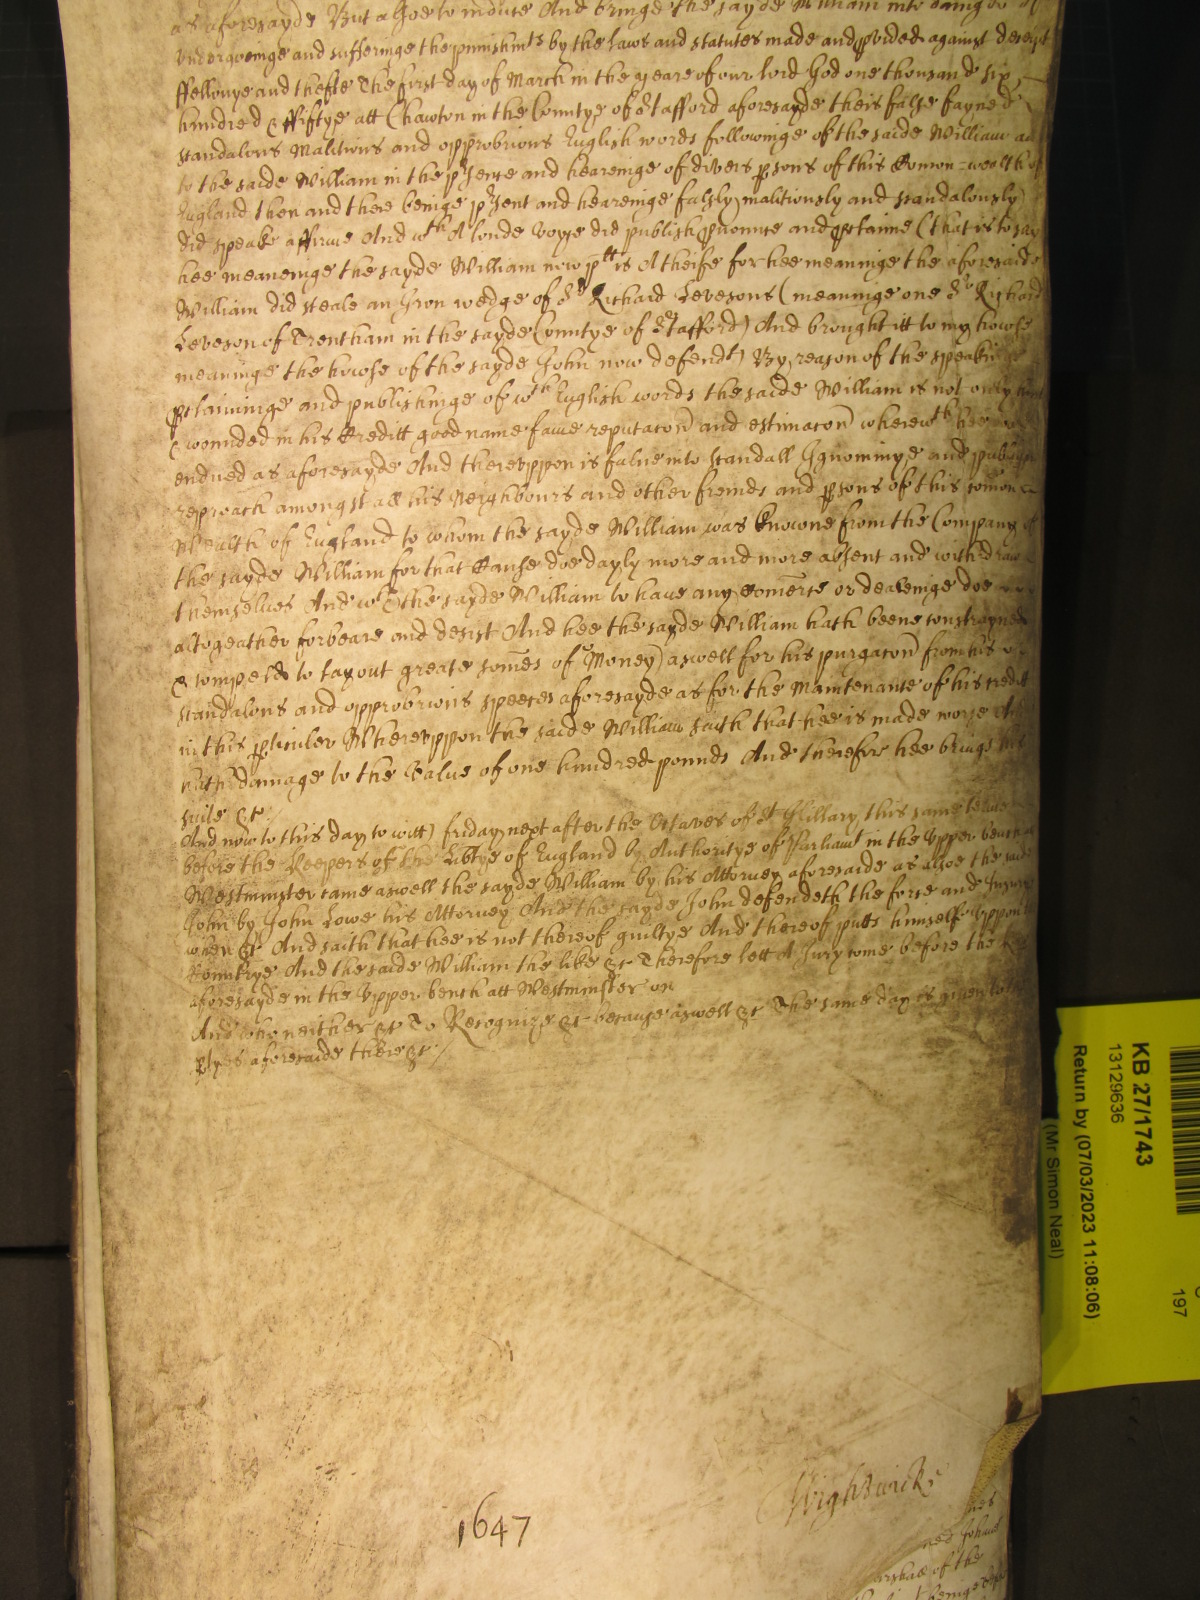 as aforesayde But alsoe to induce And bringe the sayde William into daunger of
undergoeinge and sufferinge the punishmts by the laws and statutes made and pvided against
ffellonye and thefte The first day of March in the yeare of our lord God one thousand six
hundred & ffiftye att Chawton in the Countye of Stafford aforesayde theis false fayned
scandalous Malitious and opprobrious English words followinge of the saide William and
to the saide William in the psence and heareinge of divers psons of this Comon-wealth of
England then and there beinge psent and heareinge falsly malitiously and scandalously
did speake affirme And wth A loude voyce did publish pnounce and pclaime (that is to say
hee meaneinge the sayde William now pltt is A theife for hee meaninge the aforesaide
William did steale an Iron wedge of Sr Richard Levesons (meaninge one Sr Richard
Leveson of Trentham in the sayde Countye of Stafford) And brought itt to my howse
meaninge the howse of the sayde John now defendt) By reason of the speakinge
pclaiminge and publishinge of wch English words the saide William is not only hurt
& wounded in his Creditt good name fame reputacon and estimacon wherewth hee was
endued as aforesayde And thereuppon is falne into Scandall Ignominye and publique
reproach amongst all his Neighbours and other freinds and psons of this comon
Wealth of England to whom the sayde William was knowne from the Company of
the sayde William for that Cause doe dayly more and more absent and withdrawe
themselves And wth the sayde William to have any comerce or dealeinge doe
altogeather forbeare and desist And hee the sayde William hath beene constrayned
& compeld to lay out greate somes of Money aswell for his purgacon from his
scandalous and opprobrious speeces aforesayde as for the Maintenance of his creditt
in this pticuler Whereuppon the saide William saith that hee is made worse And
hath damage to the value of one hundred pounds And therefor hee brings his
suite &c
And now to this day to witt) friday next after the Octaves of St Hillary this same terme
before the Keepers of the Libtye of England by Authoritye of Parliamt in the upper bench at
Westminster came aswell the sayde William by his Attorney aforesaide as alsoe the saide
John by John Lowe his Attorney And the sayde John defendeth the force and Injury
when &c And saith that hee is not thereof guiltye And thereof putts himself uppon the
Countrye And the saide William the like &c Therefore lett A Jury come before the
aforesayde in the upper bench att Westminster on
And who neither &c To Recognize &c because aswell &c The same day is given to the
ptyes aforesaide there &c /
Wightwick
1647
Johanes
of the
KB 27/1743
13129636
Return by (07/03/2023 11:08:06)
(Mr Simon Neal)
197